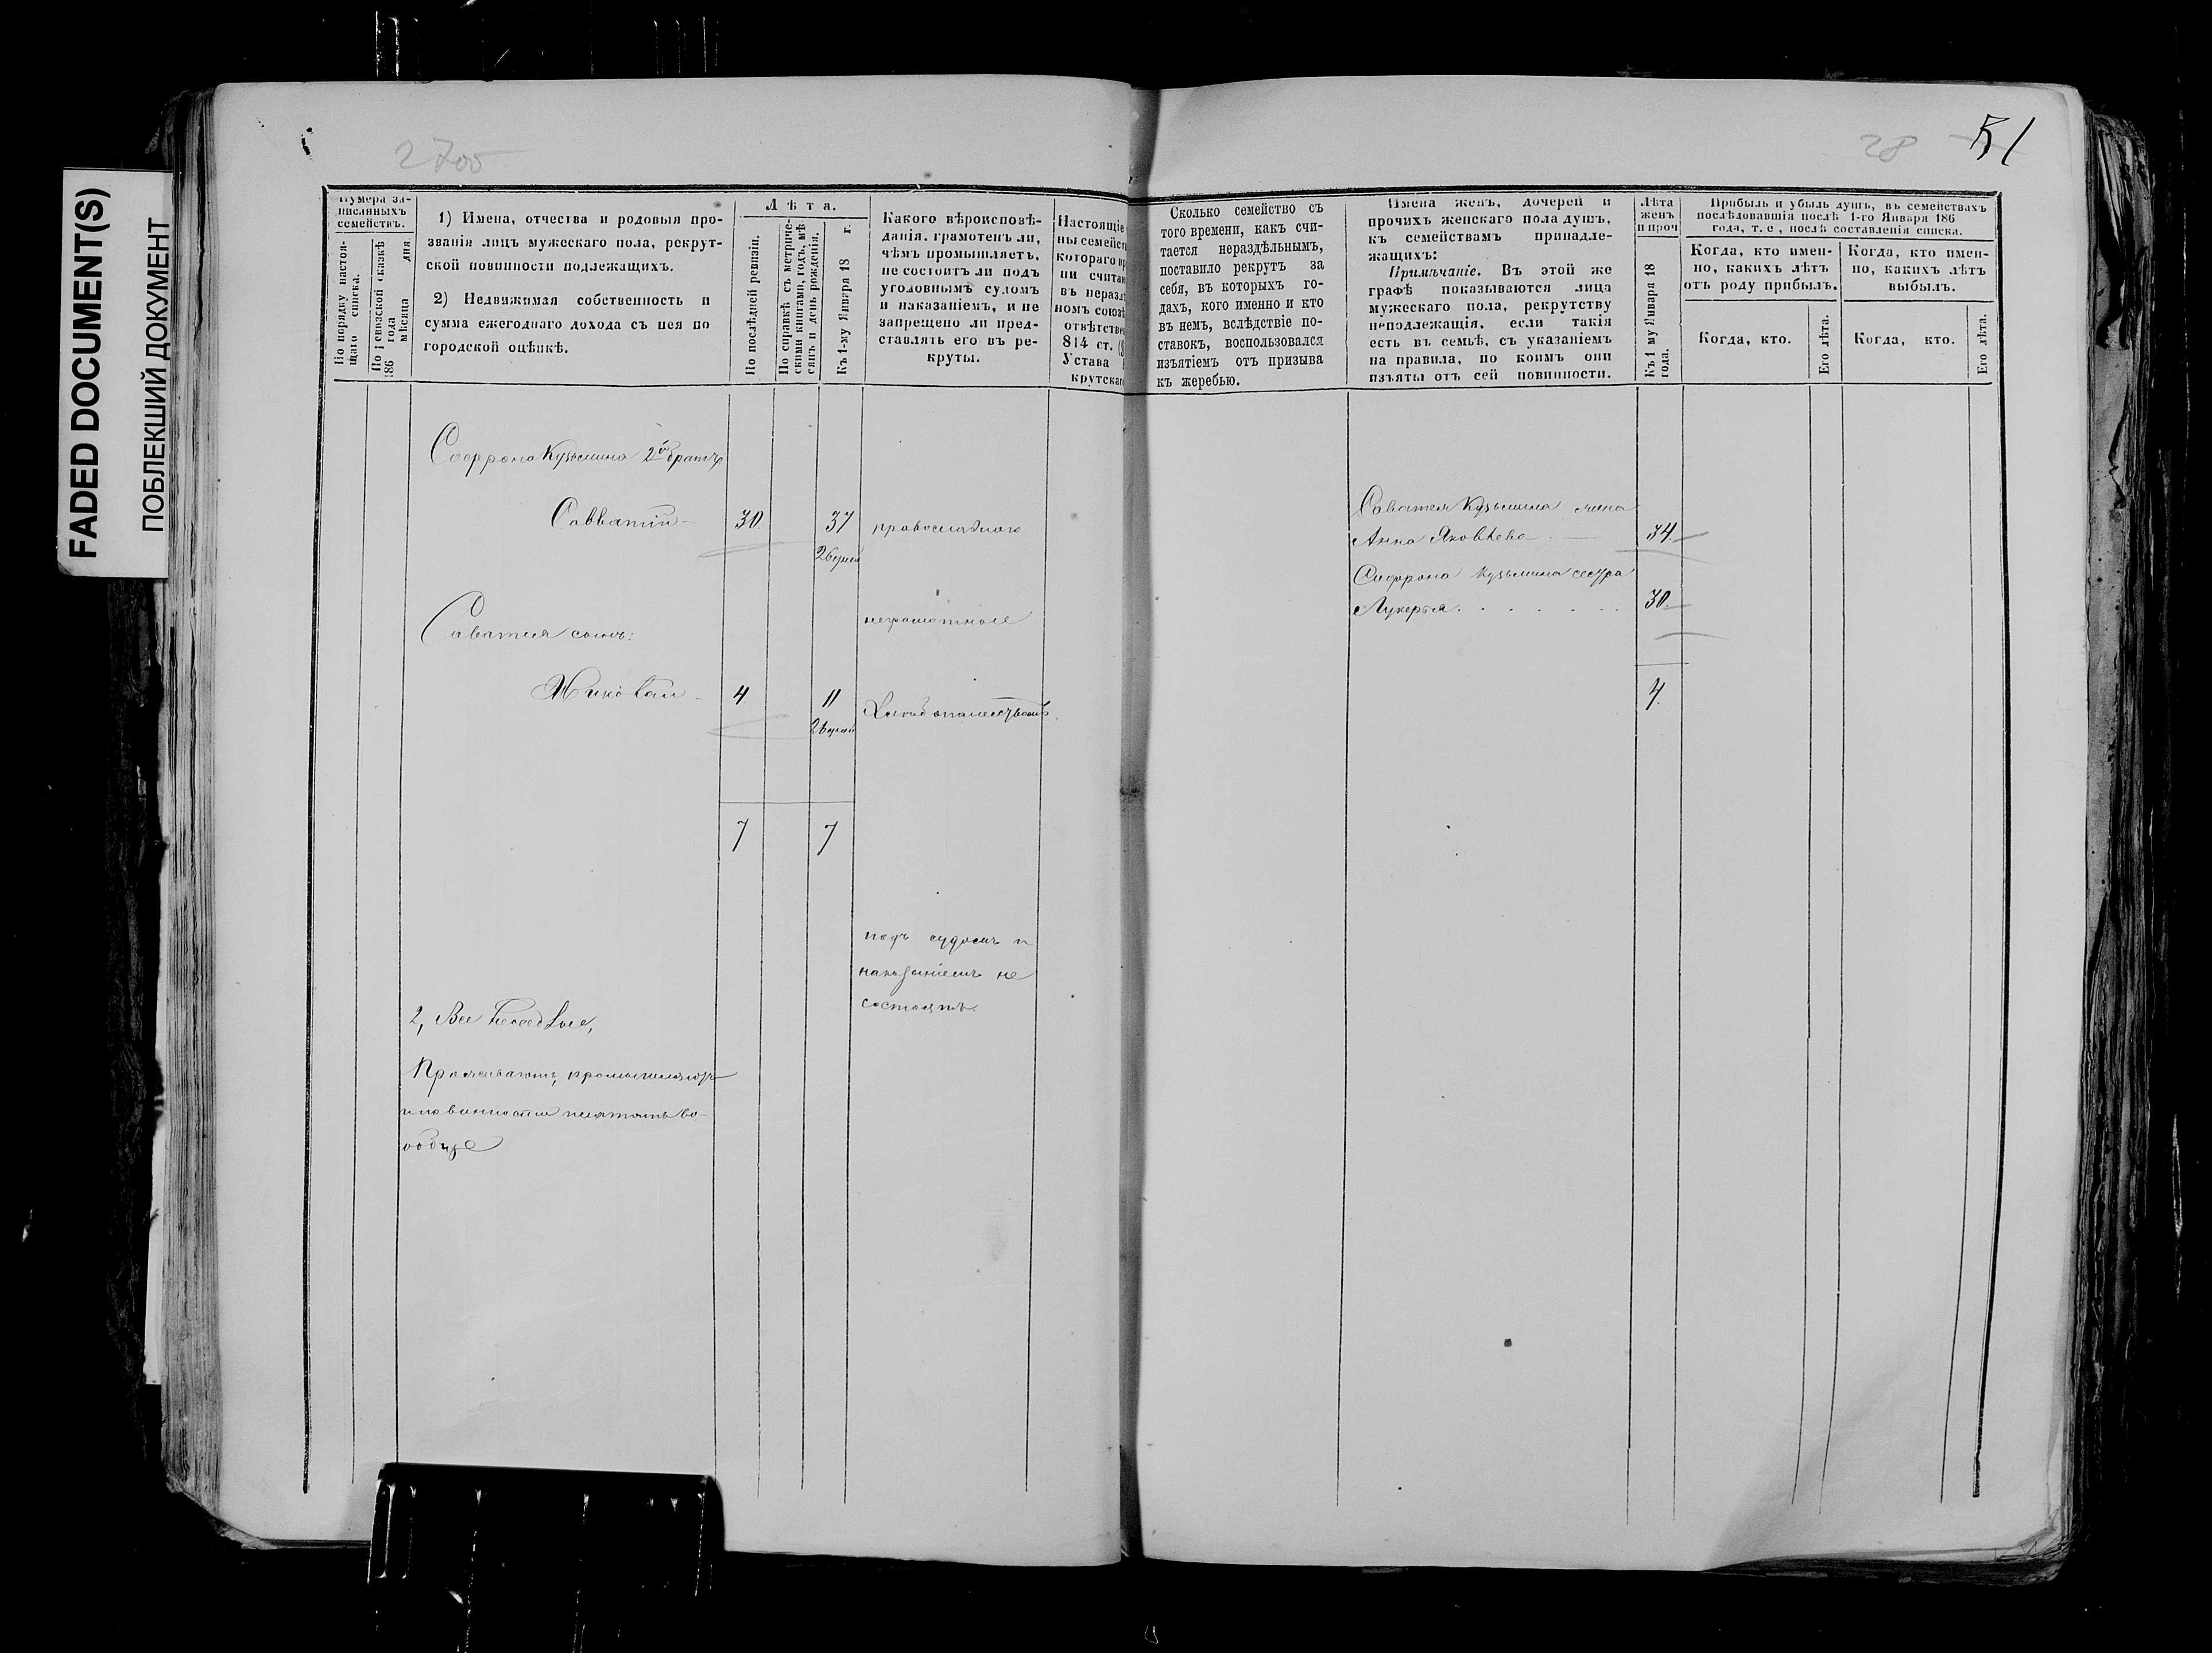 FADED DOCUMENT(S)
ПОБЛЕКШИЙ ДОКУМЕНТ
2700
28
51
Нумера за-
писанныхъ
семействъ.
По порядку настоя-
щаго списка.
По ревизской сказкѣ
186 года мѣсяца дня.
1) Имена, отчества и родовыя про-
званія лицъ мужескаго пола, рекрут-
ской повинности подлежащихъ.
2) Недвижимая собственность и
сумма ежегоднаго дохода съ нея по
городской оцѣнкѣ.
Лѣта.
По послѣдней ревизіи.
По справкѣ съ метриче-
скими книгами, годъ, мѣ-
сяцъ и день рожденія.
Къ 1-му Января 18 г.
Какого вѣроисповѣ-
данія, грамотенъ ли,
чѣмъ промышляетъ,
не состоитъ ли подъ
уголовнымъ судомъ
и наказаніемъ, и не
запрещено ли пред-
ставлять его въ ре-
круты.
Настоящіе
ны семейст
котораго вр
ни счита
въ неразд
номъ союзѣ
отвѣтстве
814 ст.
Устава
крутскаг
Сколько семейство съ
того времени, какъ счи-
тается нераздѣльнымъ,
поставило рекрутъ за
себя, въ которыхъ го-
дахъ, кого именно и кто
въ немъ, вслѣдствіе по-
ставокъ, воспользовался
изъятіемъ отъ призыва
къ жеребью.
Имена женъ, дочерей и
прочихъ женскаго пола душъ,
къ семействамъ принадле-
жащихъ:
Примѣчаніе. Въ этой же
графѣ показываются лица
мужескаго пола, рекрутству
неподлежащія, если такія
есть въ семьѣ, съ указаніемъ
на правила, по коимъ они
изъяты отъ сей повинности.
Лѣта
женъ
и проч
Къ 1 му Января 18
года.
Прибыль и убыль душъ, въ семействахъ
послѣдовавшія послѣ 1-го Января 186
года, т. е., послѣ составленія списка.
Когда, кто имен-
но, какихъ лѣтъ
отъ роду прибылъ.
Когда, кто имен-
но, какихъ лѣтъ
выбылъ.
Когда, кто.
Его лѣта.
Когда, кто.
Его лѣта.
Софрона Кузьмина 2й братъ
Савватій 30 37 православнаго
Саватея сынъ:
неграмотные
Николай 4 11
7 7
подъ судомъ и
наказаніемъ не
состоятъ.
2, Все
Проживаютъ, промышляютъ
и повинности платятъ во-
обще
Саватея Кузьмина жена
Анна Яковлева 34
Софрона Кузьмина сестра
Лукерья 30
4